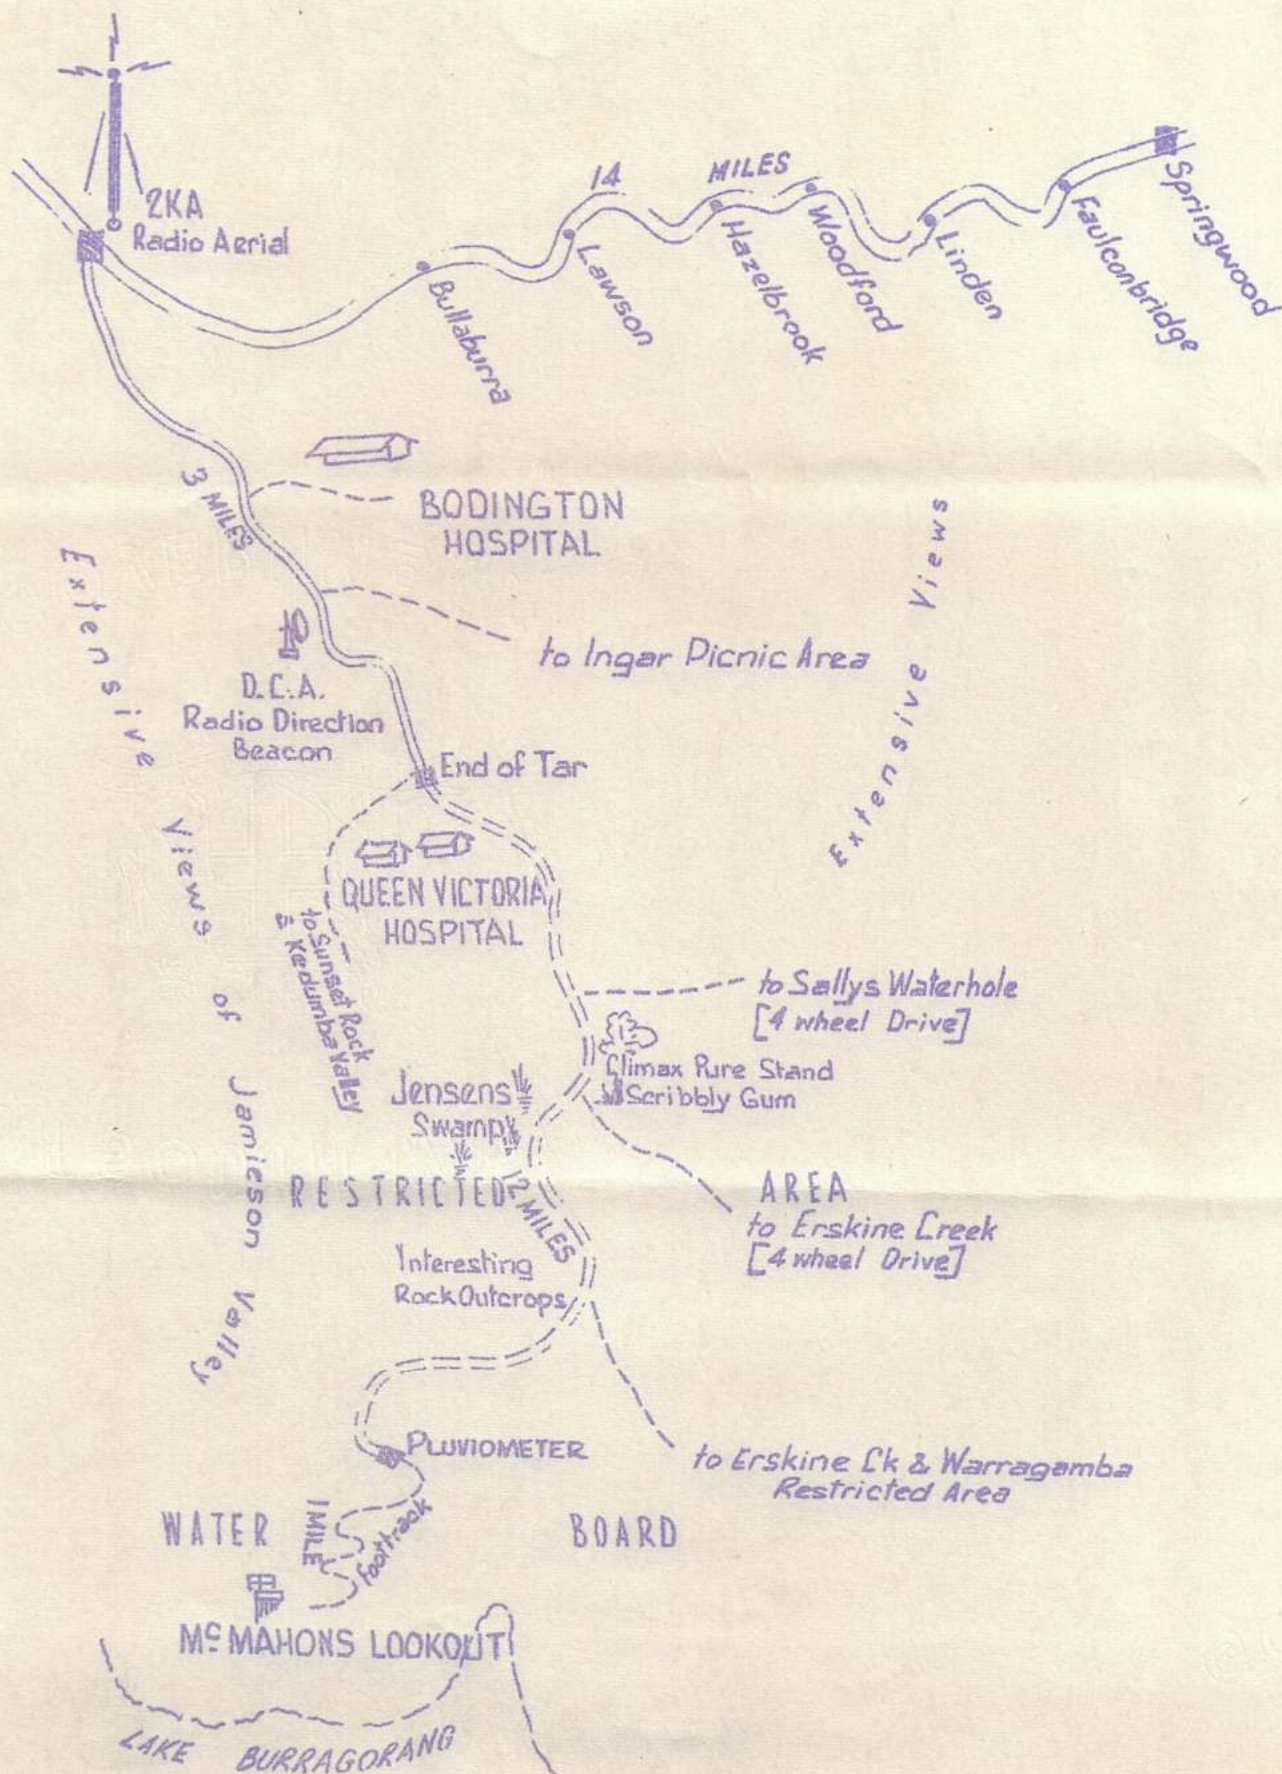 2KA
Radio Aerial
14 MILES
Springwood
Faulconbridge
Linden
Woodford
Hazelbrook
Lawson
Bullaburra
3 MILES
BODINGTON
HOSPITAL
Extensive Views
to Ingar Picnic Area
D.C.A.
Radio Direction
Beacon
End of Tar
Extensive Views of Jamieson Valley
QUEEN VICTORIA
HOSPITAL
to Sunset Rock
& Kedumba Valley
to Sallys Waterhole
[4 wheel Drive]
Climax Pure Stand
Scribbly Gum
Jensens
Swamp
RESTRICTED AREA
12 MILES
to Erskine Creek
[4 wheel Drive]
Interesting
Rock Outcrops
PLUVIOMETER
to Erskine Ck & Warragamba
Restricted Area
WATER BOARD
1 MILE
Foot track
McMAHONS LOOKOUT
LAKE BURRAGORANG